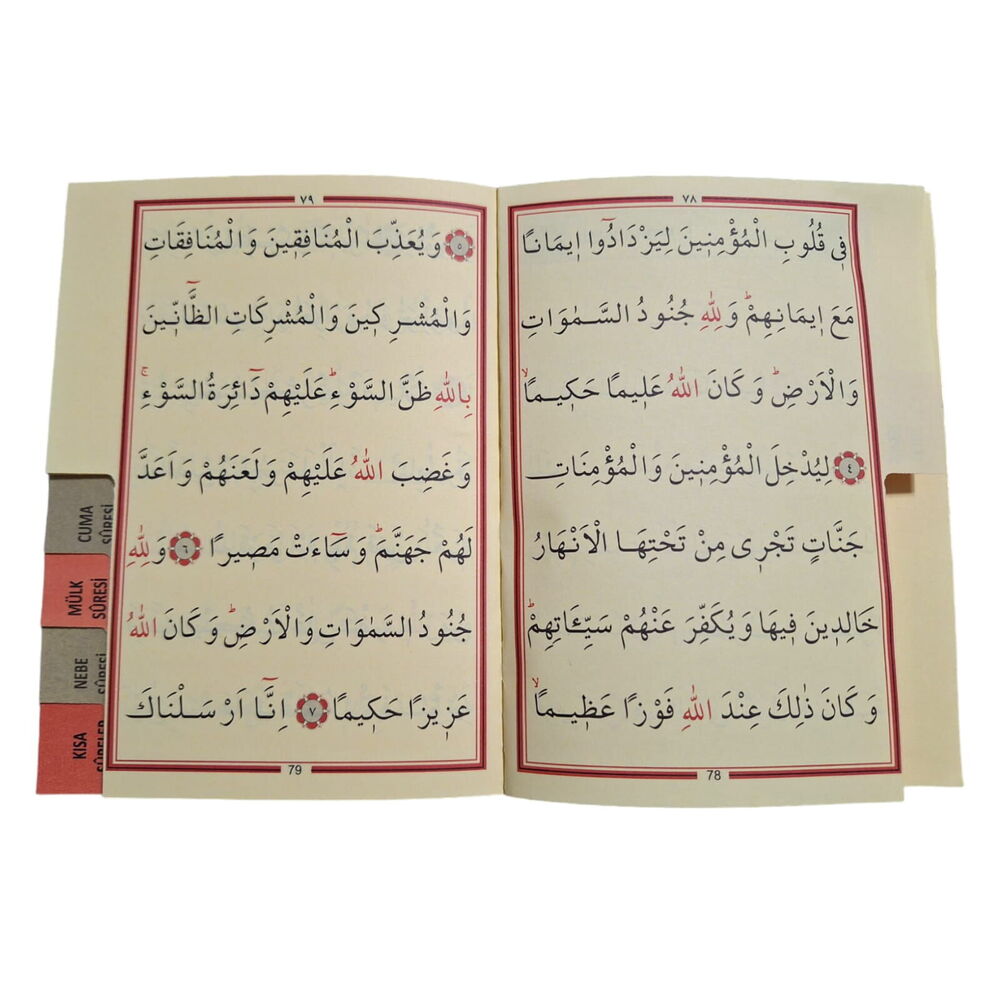 ٧٨
فِي قُلُوبِ الْمُؤْمِنِينَ لِيَزْدَادُٓوا اِيمَانًا
مَعَ اِيمَانِهِمْۜ وَلِلّٰهِ جُنُودُ السَّمٰوَاتِ
وَالْاَرْضِۜ وَكَانَ اللّٰهُ عَلِيمًا حَكِيمًاۙ
٤ لِيُدْخِلَ الْمُؤْمِنِينَ وَالْمُؤْمِنَاتِ
جَنَّاتٍ تَجْرِي مِنْ تَحْتِهَا الْاَنْهَارُ
خَالِدِينَ فِيهَا وَيُكَفِّرَ عَنْهُمْ سَيِّـَٔاتِهِمْۜ
وَكَانَ ذٰلِكَ عِنْدَ اللّٰهِ فَوْزًا عَظِيمًاۙ
78
٧٩
٥ وَيُعَذِّبَ الْمُنَافِقِينَ وَالْمُنَافِقَاتِ
وَالْمُشْرِكِينَ وَالْمُشْرِكَاتِ الظَّٓانِّينَ
بِاللّٰهِ ظَنَّ السَّوْءِۜ عَلَيْهِمْ دَٓائِرَةُ السَّوْءِۚ
وَغَضِبَ اللّٰهُ عَلَيْهِمْ وَلَعَنَهُمْ وَاَعَدَّ
لَهُمْ جَهَنَّمَۜ وَسَٓاءَتْ مَصِيرًا ٦ وَلِلّٰهِ
جُنُودُ السَّمٰوَاتِ وَالْاَرْضِۜ وَكَانَ اللّٰهُ
عَزِيزًا حَكِيمًا ٧ اِنَّٓا اَرْسَلْنَاكَ
79
CUMA
SÛRESİ
MÜLK
SÛRESİ
NEBE
SÛRESİ
KISA
SÛRELER